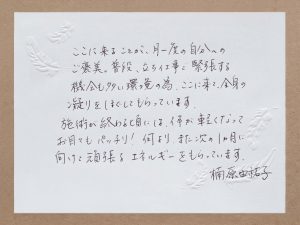 ここに来ることが、月一度の自分への
ご褒美。普段、立ち仕事と緊張する
機会も多い環境の為、ここに来て、全身の
凝りをほぐしてもらっています。
施術が終わる頃には、体が軽くなって
お目々もパッチリ! 何より、また次の1ヵ月に
向けて頑張るエネルギーをもらっています。
楠原由祐子